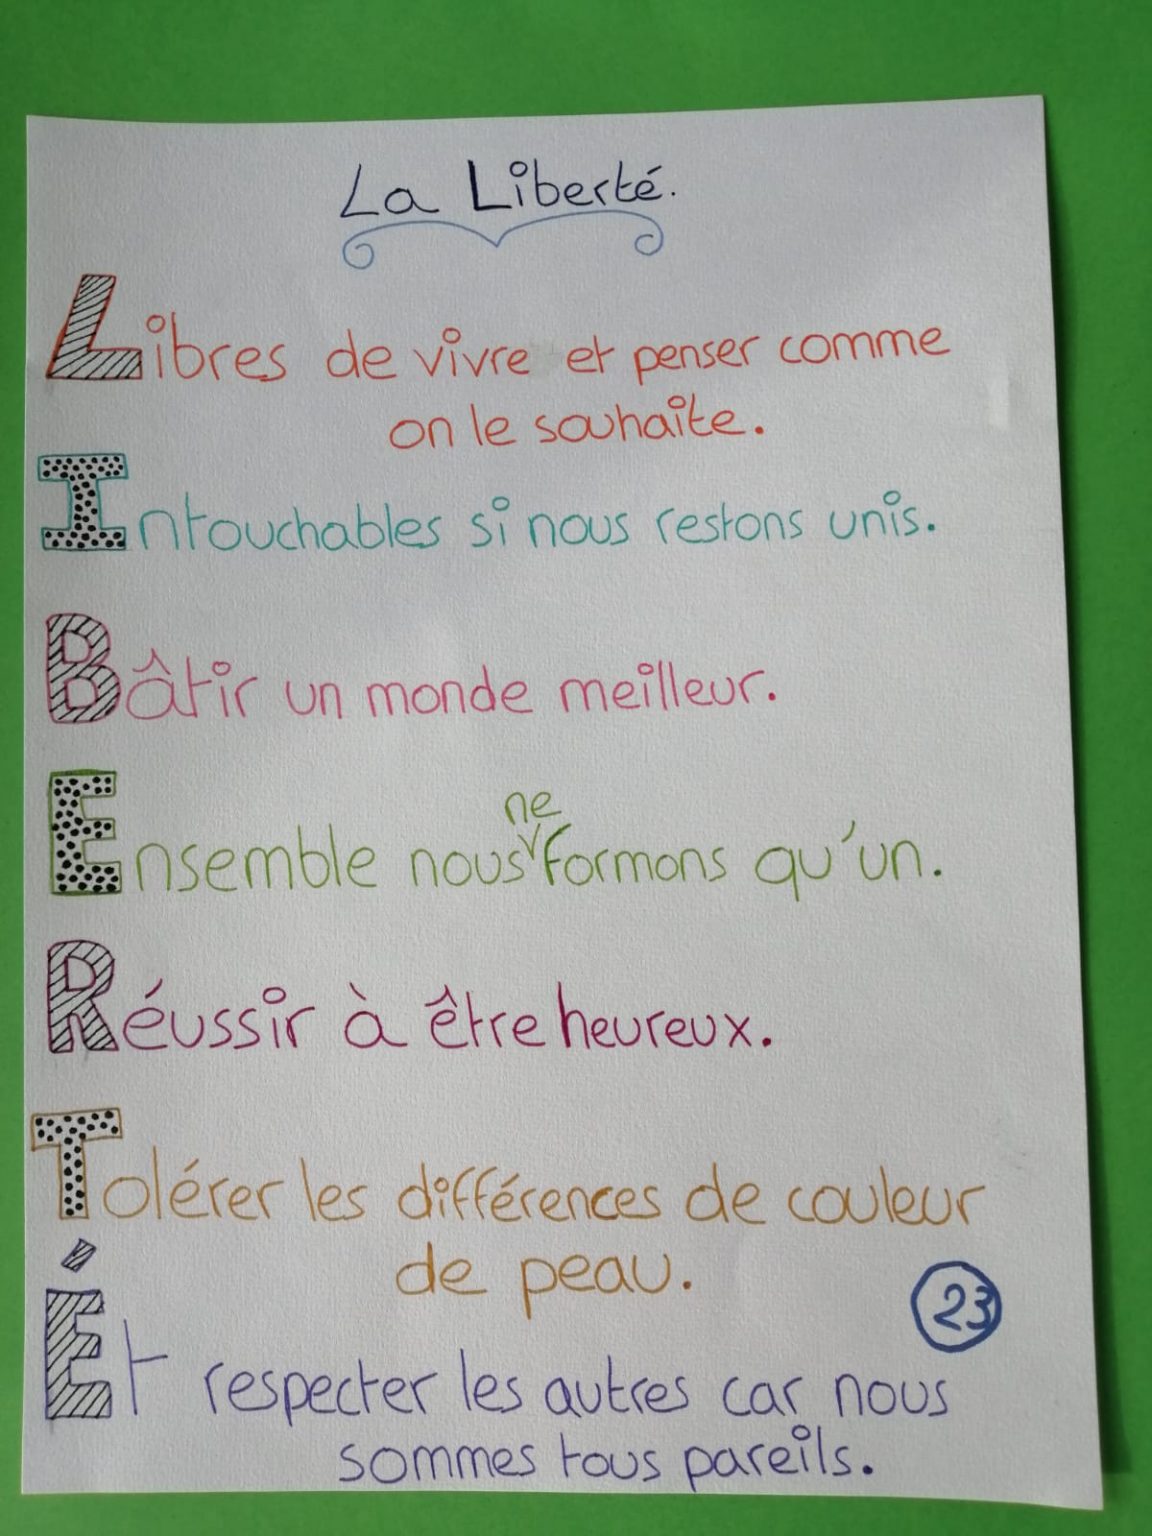 La Liberté.
Libres de vivre et penser comme
on le souhaite.
Intouchables si nous restons unis.
Bâtir un monde meilleur.
ne
Ensemble nous formons qu'un.
Réussir à être heureux.
Tolérer les différences de couleur
de peau.
23
Ét respecter les autres car nous
sommes tous pareils.